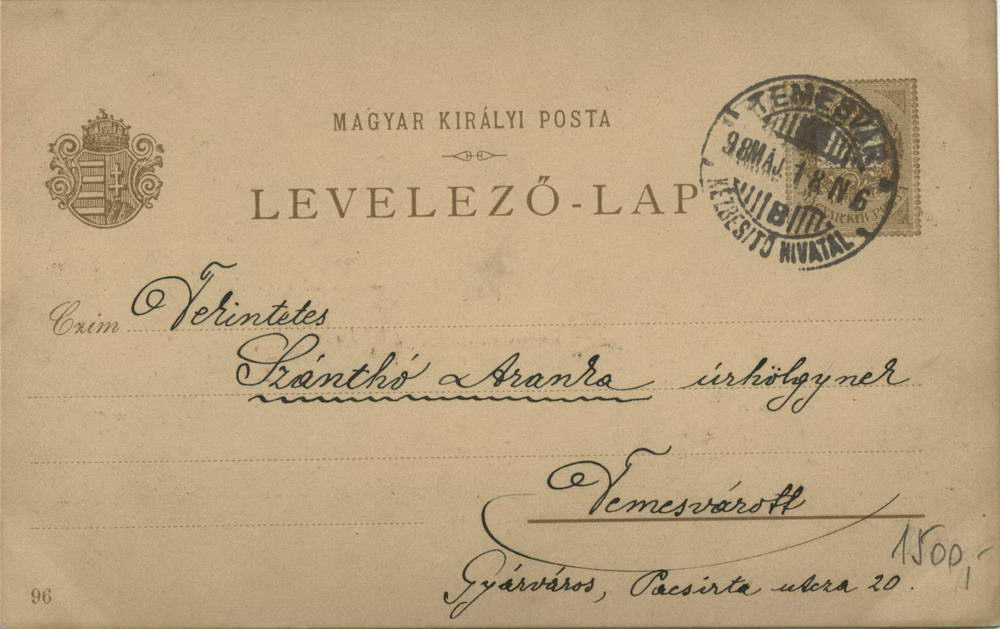 MAGYAR KIRÁLYI POSTA
LEVELEZŐ-LAP
TEMESVÁR
98 MÁJ. 18 N 6
B
KÉZBESITŐ HIVATAL
Czim Tekintetes
Szánthó Aranka úrhölgynek
Temesvárott
Gyárváros, Pacsirta utcza 20.
1500,-
96